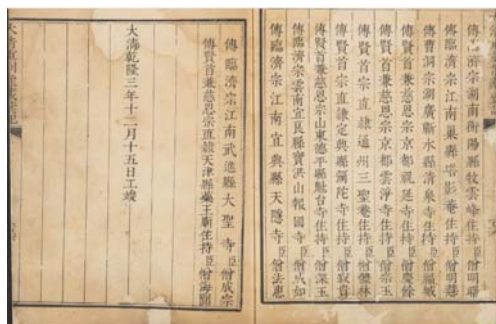 濟宗湖南衡陽縣牧雲峰住持臣僧明
傳臨濟宗江南巢縣塔影菴住持臣僧明
傳曹洞宗湖廣蘄水縣清泉寺住持臣僧
傳賢首兼慈恩宗京都視延寺住持臣僧慶餘
傳賢首兼慈恩宗京都雲淨寺住持臣僧宗玉
傳賢首宗直隸通州三聖菴住持臣僧林
傳賢首宗直隸定興縣彌陀寺住持臣僧寂貴
傳賢首兼慈恩宗山東德平縣魁台寺住持臣僧深玉
傳臨濟宗雲南宜良縣寶洪山報國寺臣僧成如
傳臨濟宗江南宜興縣天隱寺臣僧法應
傳臨濟宗江南武進縣大聖寺臣僧成宗
傳賢首兼慈恩宗直隸天津縣藥王廟住持臣僧海
大清乾隆三年十二月十五日工竣